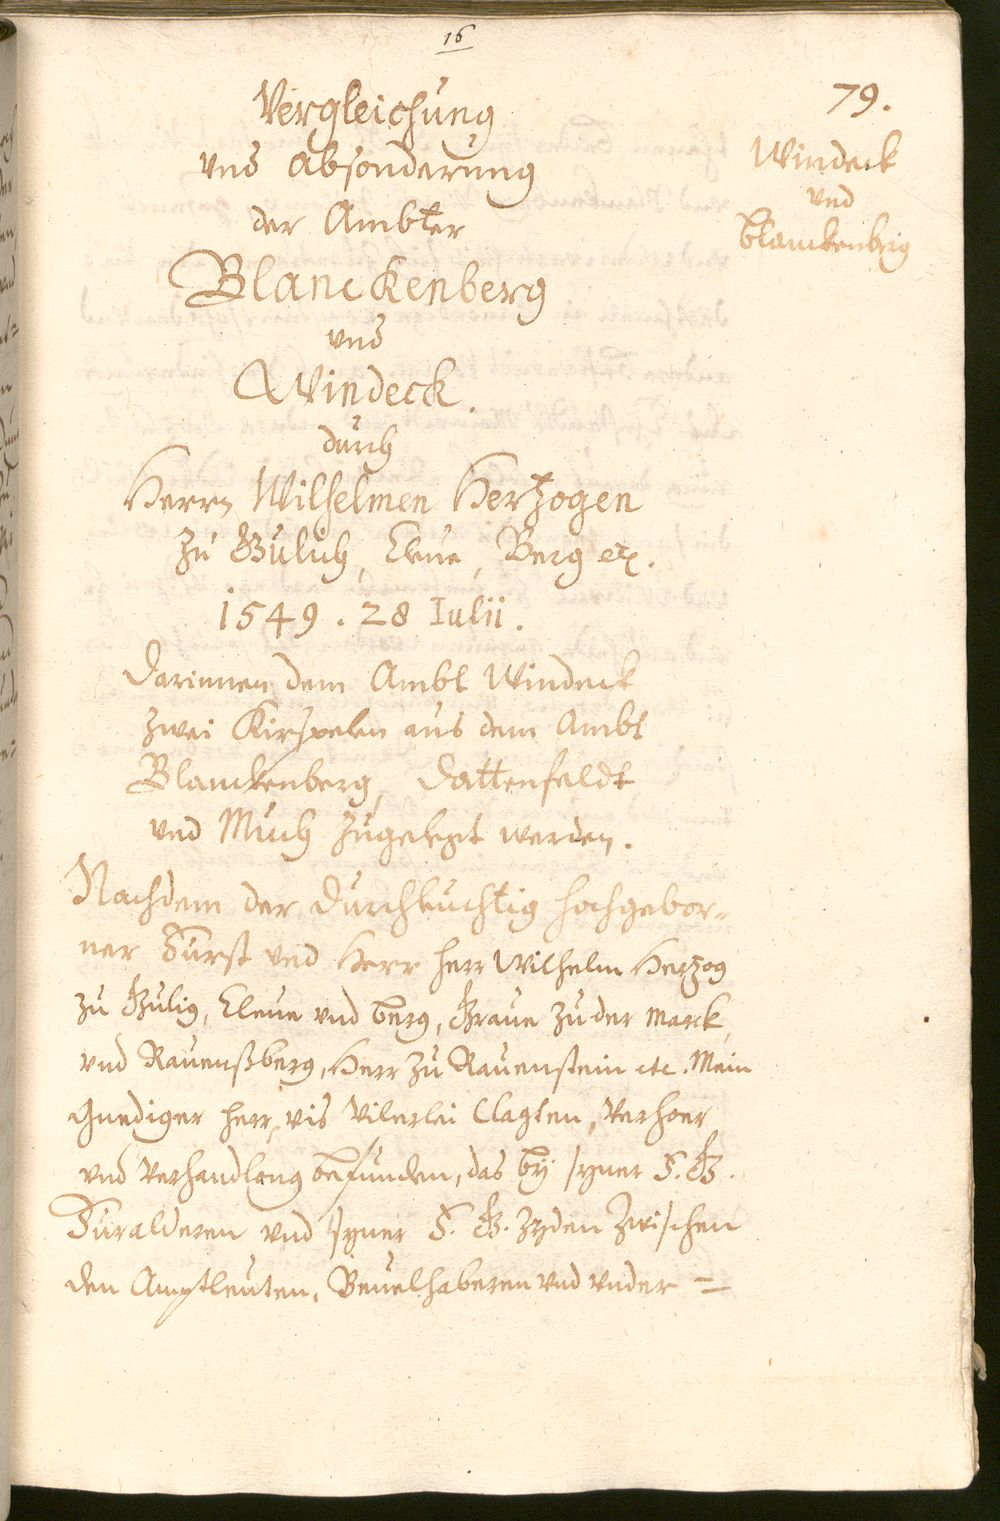 16
79.
Vergleichung
vnd Absonderung
der Ambter
Blanckenberg
vnd
Windeck.
durch
Herrn Wilhelmen Hertzogen
zu Gulich, Cleue, Berg etc.
1549. 28 Iulii.
Darinnen dem Ambt Windeck
zwei Kirspelen aus dem Ambt
Blanckenberg, Dattenfeldt
vnd Much zugelegt werden.
Windeck
vnd
Blanckenberg
Nachdem der Durchleuchtig hochgebor-
ner Furst vnd Herr herr Wilhelm Hertzog
zu Gulig, Cleue vnd berg, Graue zu der Marck,
vnd Rauenßberg, Herr zu Rauenstein etc. Mein
gnediger herr, vis vilerlei Clagten, Verhoer
vnd Verhandlong befunden, das by syner F. G.
Furalderen vnd syner F. G. zyden zwischen
den Amptleuten, Beuelhaberen vnd vnder =